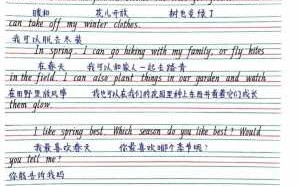 暖和 花儿开放 树也变绿了
can take off my winter clothes.
我可以脱去冬装
In spring, I can go hiking with my family, or fly kites
在春天 我可以和家人一起去踏青
in the field. I can also plant things in our garden and watch
在田野里放风筝 我也可以在我们的花园里种上东西并看着它们成长
them glow.
I like spring best. Which season do you like best? Would
我最喜欢春天 你最喜欢哪个季节呢?
you tell me?
你能告诉我吗